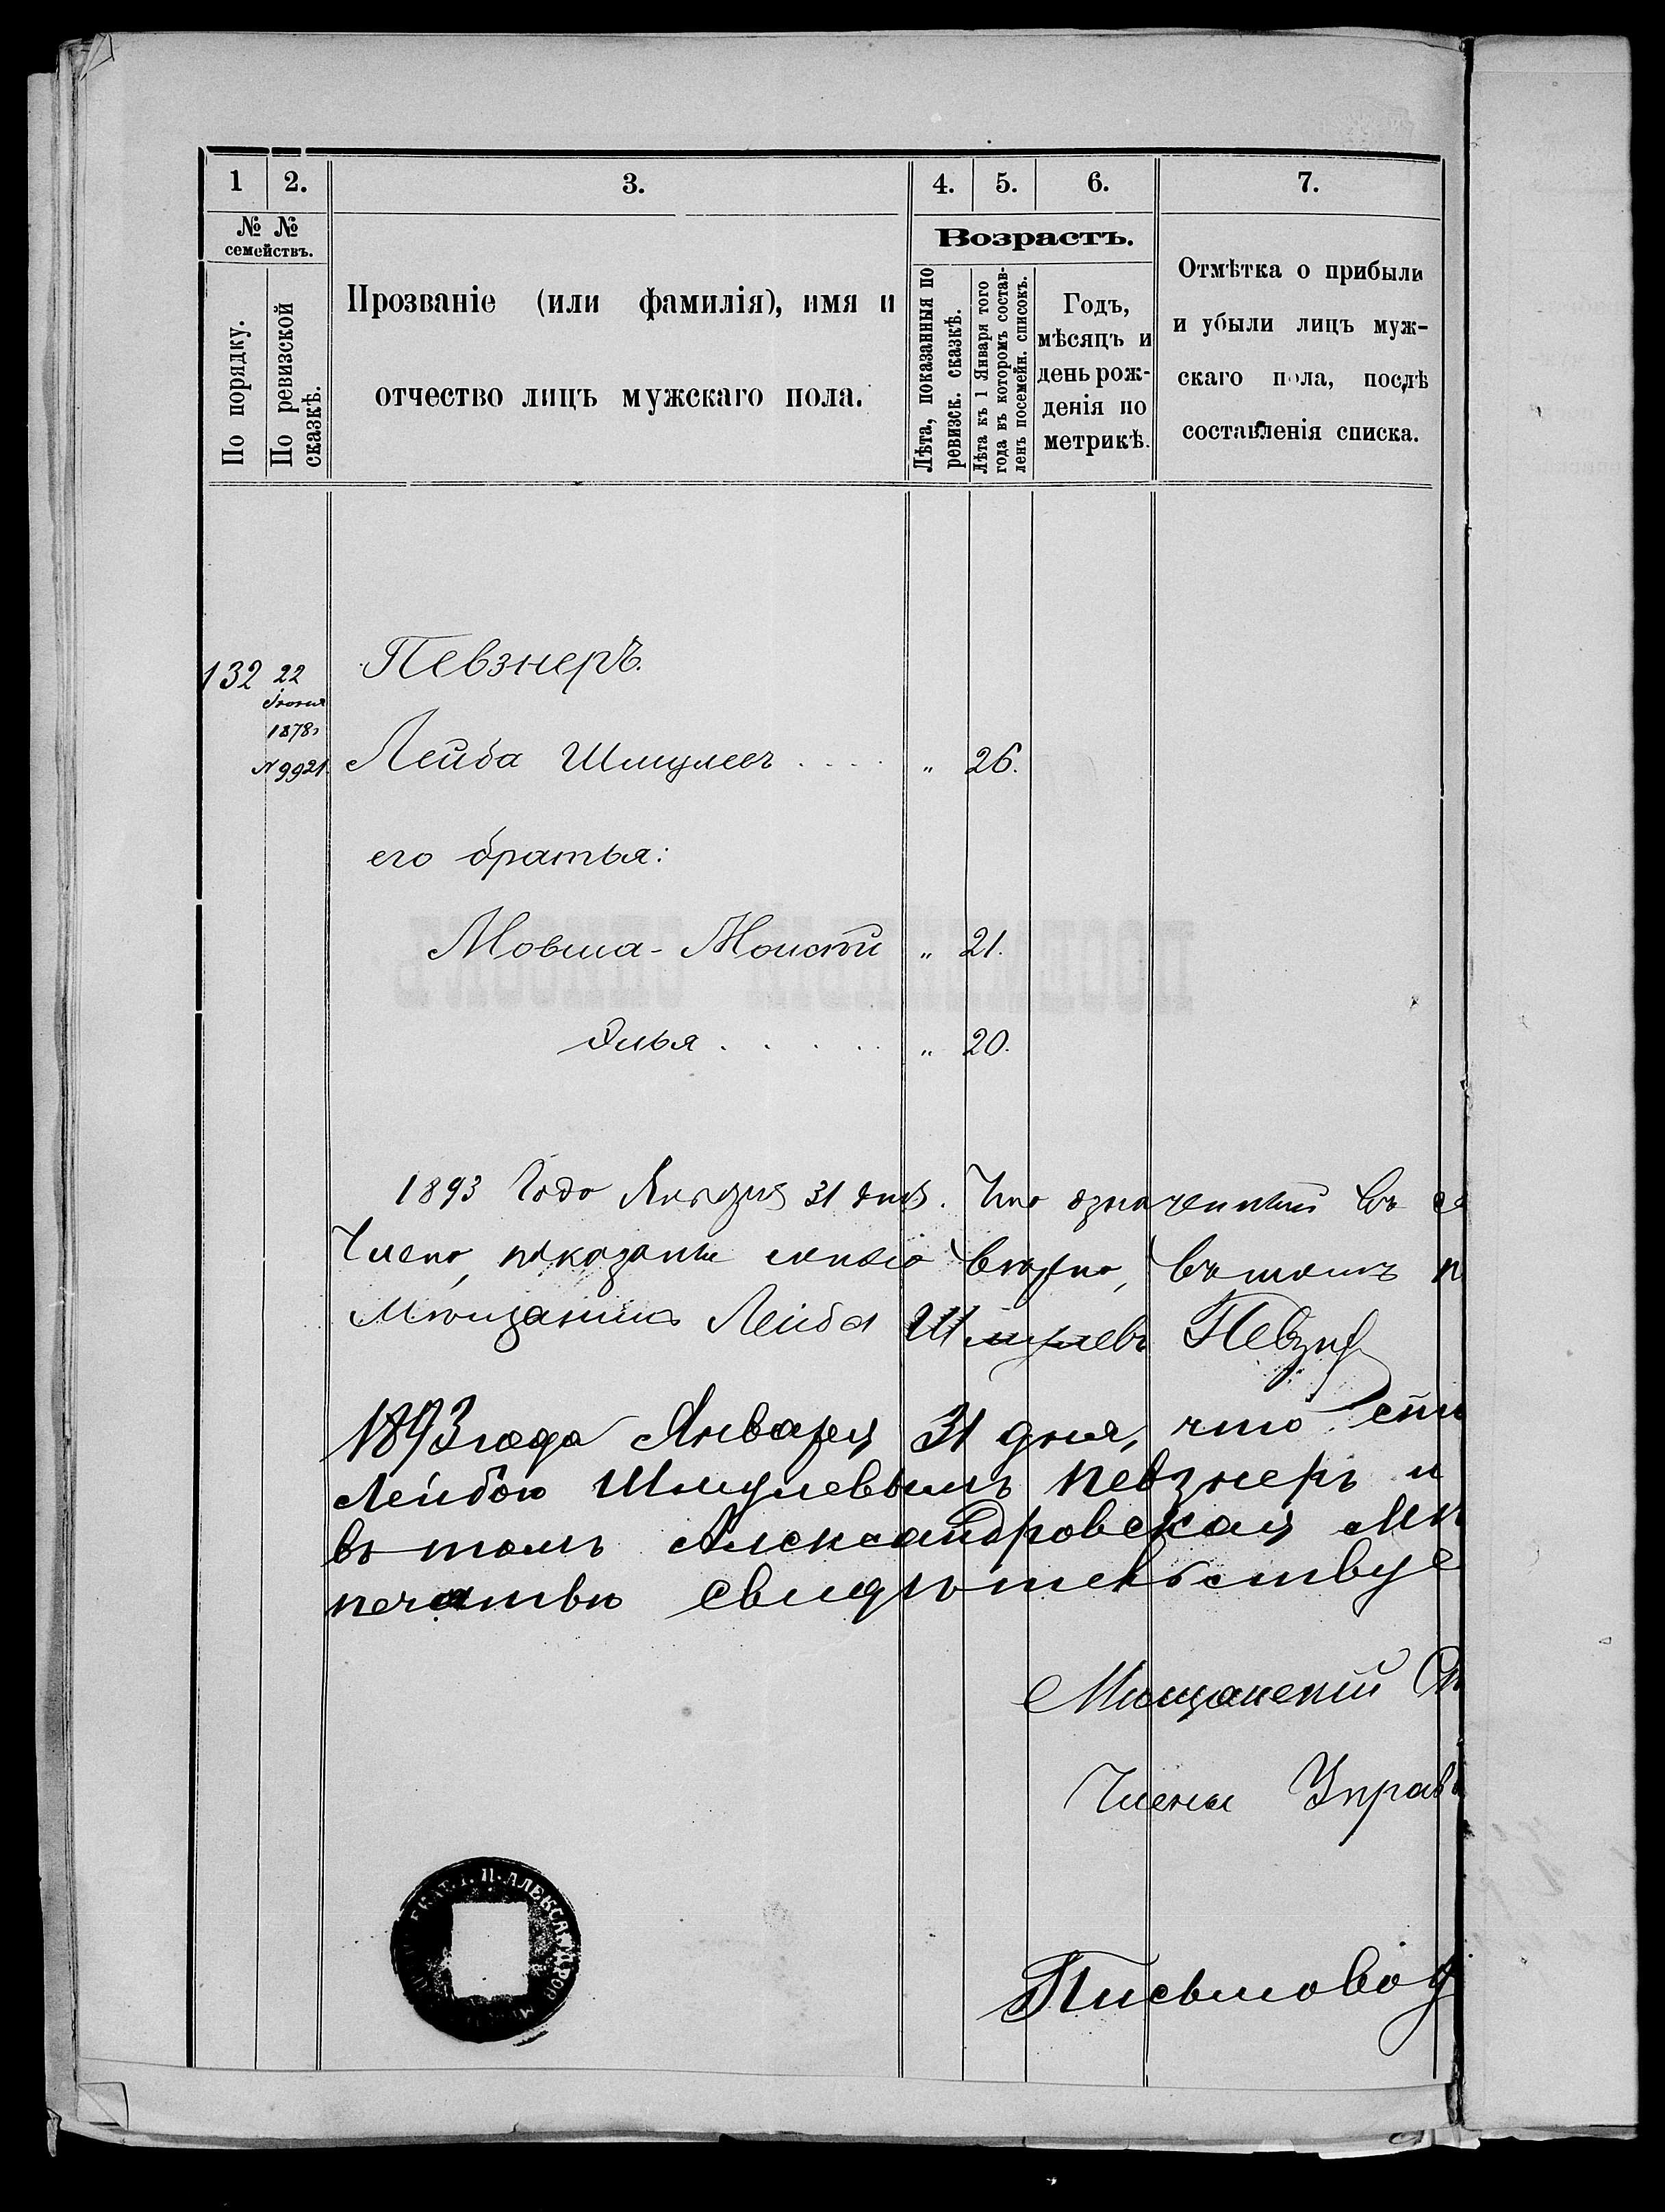 1 2. 3. 4. 5. 6. 7.
№ №
семействъ.
По порядку.
По ревизской
сказкѣ.
Прозваніе (или фамилія), имя и
отчество лицъ мужскаго пола.
Возрастъ.
Лѣта, показанныя по
ревизск. сказкѣ.
Лѣта къ 1 Января того
года въ которомъ состав-
ленъ посемейн. списокъ.
Годъ,
мѣсяцъ и
день рож-
денія по
метрикѣ.
Отмѣтка о прибыли
и убыли лицъ муж-
скаго пола, послѣ
составленія списка.
132 22 Певзнеръ.
Іюня
1878г
№ 9921. Лейба Шмулевъ . . . . „ 26.
его братья:
Мовша - Моисей „ 21.
Элья . . . . . „ 20.
1893 Года Января 31 дня. Что означенный въ
показаны вѣрно, въ томъ
Мѣщанинъ Лейба Шмулевъ Певзнер
1893 года Января 31 дня, что
Лейбою Шмулевымъ Певзнеръ и
въ томъ Александровская
печатью свидѣтельствуе
Мѣщанскій
Члены Управ
Письмовод
АЛЕКСАНДРОВ